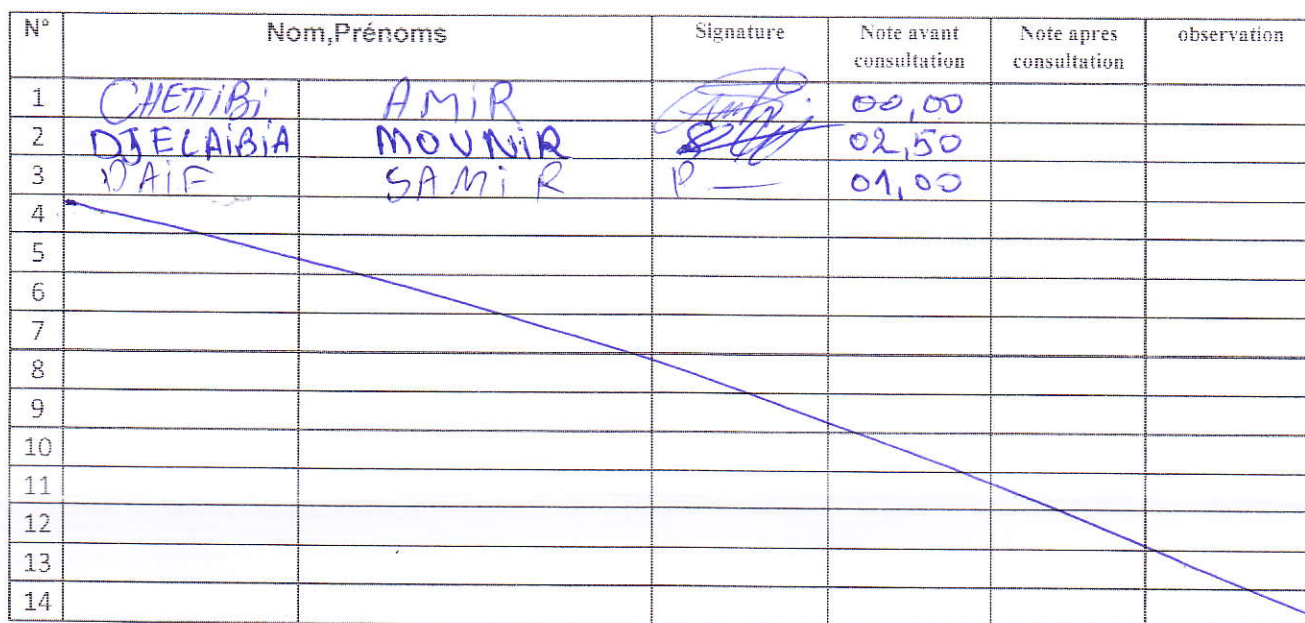 N° Nom,Prénoms Signature Note avant consultation Note apres consultation observation
1 CHETTiBi AMiR 00,00
2 DJELAiBiA MOUNiR 02,50
3 DAiF SAMiR P 01,00
4
5
6
7
8
9
10
11
12
13
14